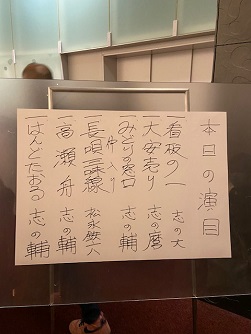 本日の演目
一 看板の一 志の大
一 大安売り 志の麿
一 みどりの窓口 志の輔
仲入り
一 長唄三味線 松永鉄六
一 高瀬舟 志の輔
一 はんどたおる 志の輔